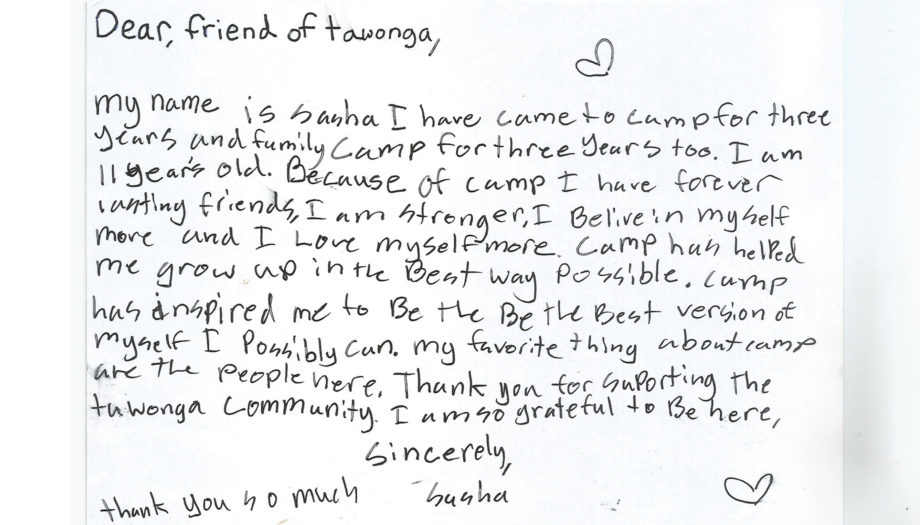 Dear, friend of tawonga,
my name is Sasha I have came to camp for three
years and family camp for three years too. I am
11 year's old. Because of camp I have forever
lasting friends, I am stronger, I Belive in myself
more and I Love myself more. Camp has helped
me grow up in the Best way possible. Camp
has inspired me to Be the Be the Best version of
myself I Possibly can. my favorite thing about camp
are the people here. Thank you for suporting the
tawonga community. I am so grateful to Be here,
Sincerely,
thank you so much Sasha